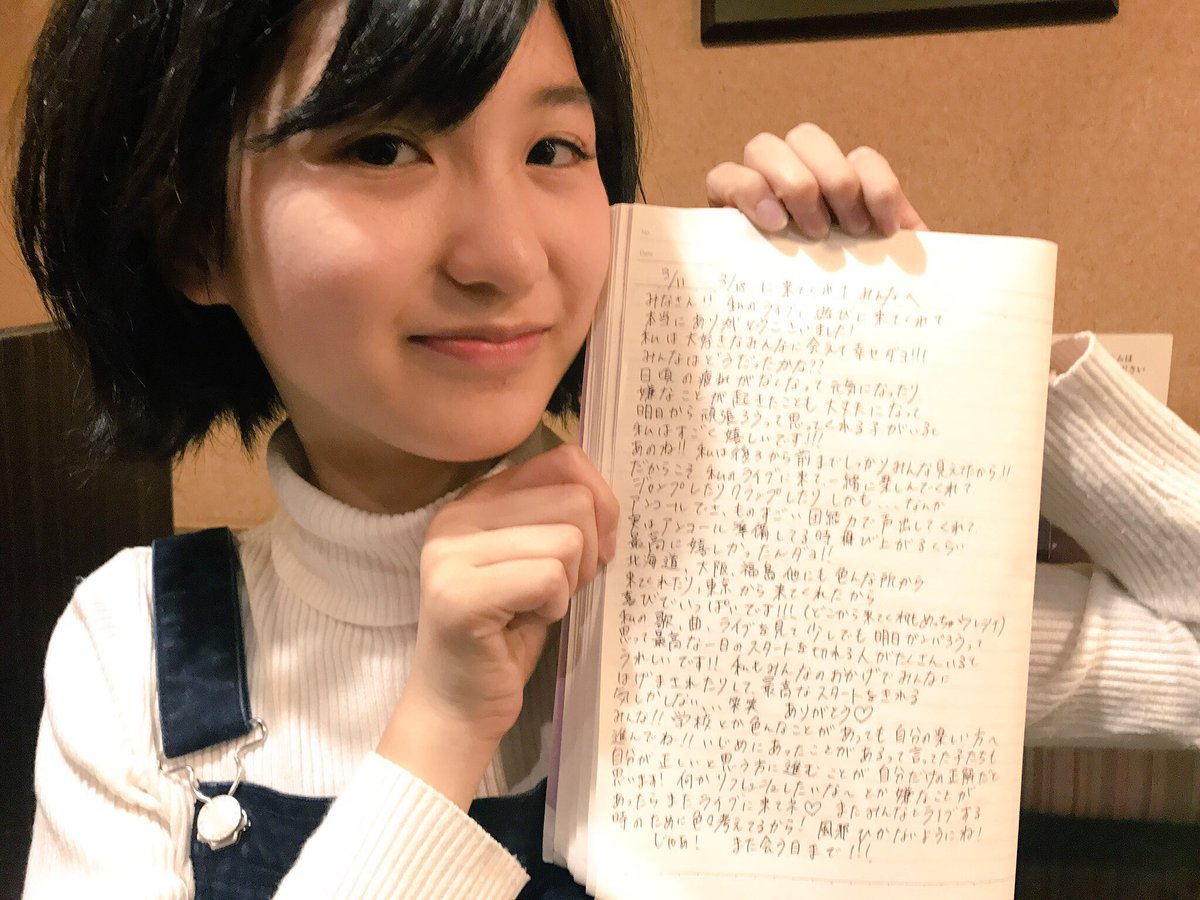 No.
Date
3/11 3/18 に来てくれた みんなへ
みなさん!! 私のライブに遊びに来てくれて
本当にありがとうございました!
私は大好きなみんなに会えて幸せダヨ!!!
みんなはどうだったかな??
日頃の疲れがなくなって元気になったり
嫌なことが起きたことも大丈夫になって
明日から頑張ろうって思ってくれる子がいると
私はすごく嬉しいです!!!
あのね!! 私は後ろから前までしっかりみんな見えてたから!!
だからこそ 私のライブに来て一緒に楽しんでくれて
ジャンプしたりクラップしたり しかも...なんか
アンコールでさ、ものすごい団結力で声出してくれて
実はアンコール準備してる時 飛び上がるくらい
最高に嬉しかったんダヨ!!
北海道、大阪、福島、他にも色んな所から
来てくれたり、東京から来てくれたから
喜びでいっぱいです!!!(どこから来てくれてもめっちゃウレシイ)
私の歌、曲、ライブを見て少しでも明日ガンバろうって
思って最高な一日のスタートを切れる人がたくさんいると
うれしいです!! 私もみんなのおかげでみんなに
はげまされたりして最高なスタートをきれる
気しかしない、、笑笑 ありがとう♡
みんな!! 学校とか色んなことがあっても自分の楽しい方へ
進んでね!! いじめにあったことがあるって言ってた子たちも
自分が正しいと思う方に進むことが自分だけの正解だと
思います! 何かリフレッシュしたいな〜とか嫌なことが
あったらまたライブに来てネ♡ またみんなとライブする
時のために色々考えてるから! 風邪ひかないようにね!
じゃあ! また会う日まで!!!